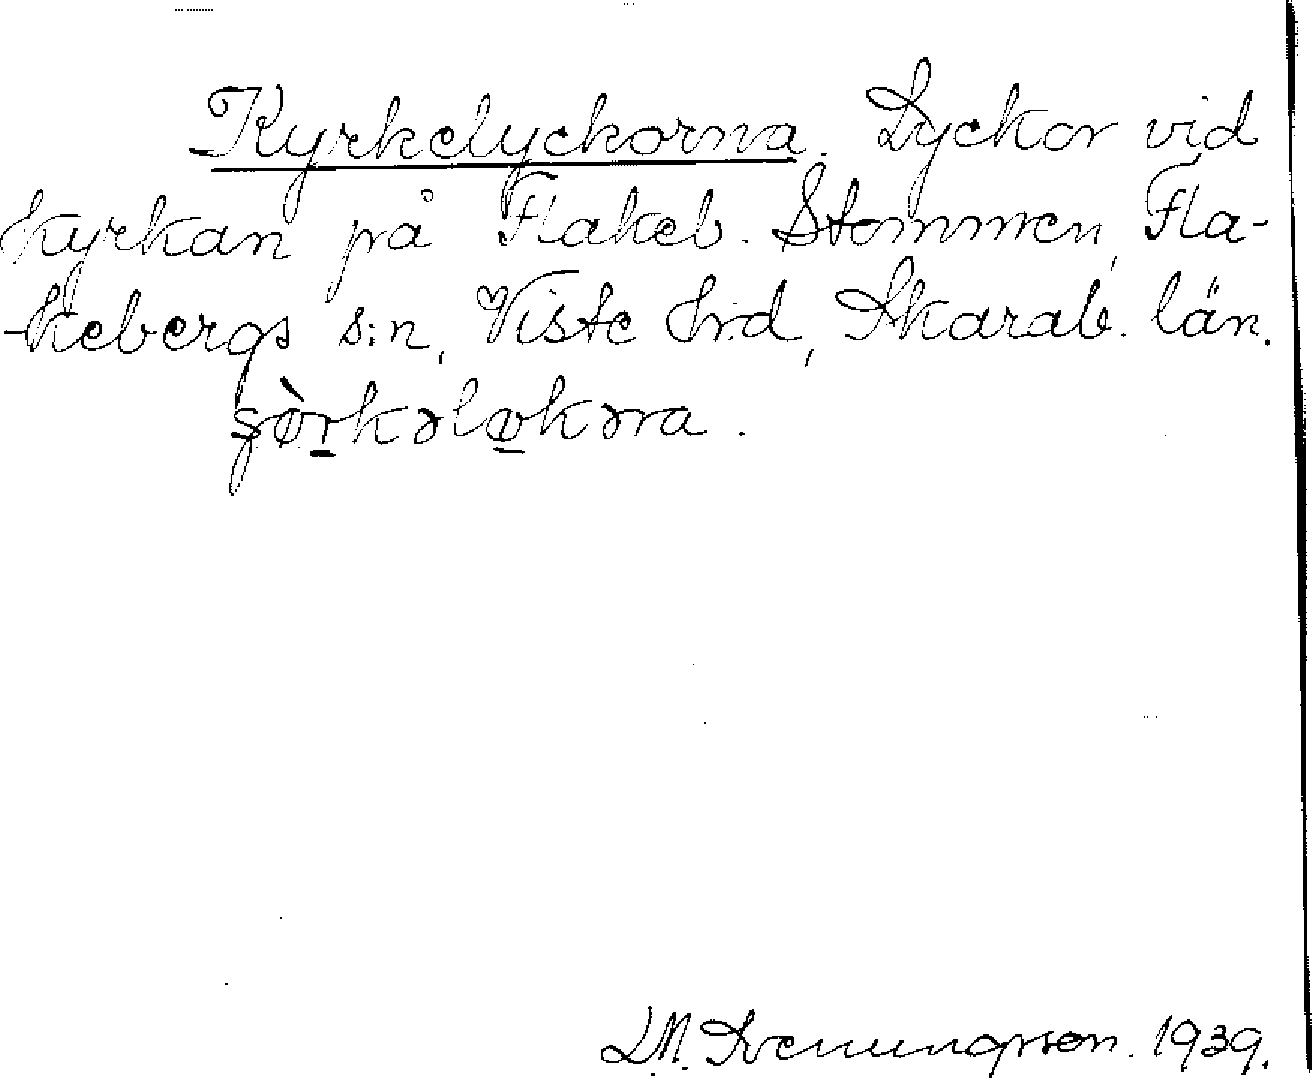 Kyrkelyckorna. Lyckor vid
kyrkan på Flakeb. Stommen, Fla-
kebergs s:n, Viste hrd, Skarab. län.
L.M. Svenungsson. 1939.